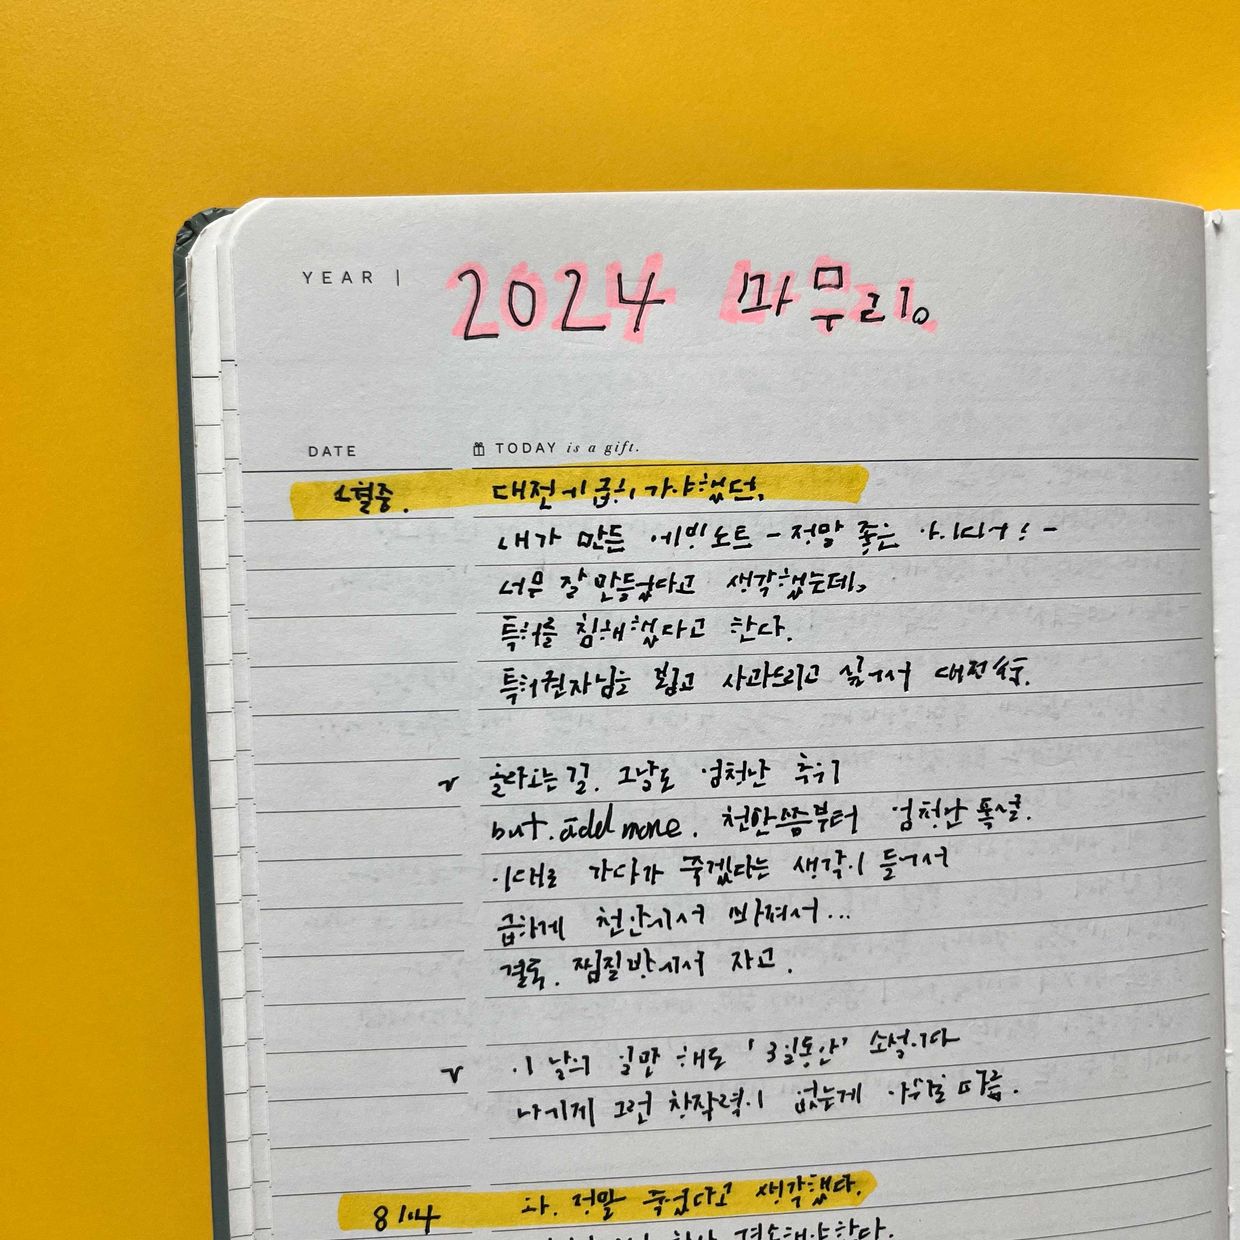 YEAR | 2024 마무리。
DATE TODAY is a gift.
대전에 급히 가야했던,
내가 만든 에빙노트 - 정말 좋은 아이디어! -
너무 잘 만들었다고 생각했는데,
특허를 침해했다고 한다.
특허권자님을 뵙고 사과드리고 싶어서 대전行.
v 올라오는 길. 그날도 엄청난 추위
but. add more. 천안쯤부터 엄청난 폭설.
이대로 가다가 죽겠다는 생각이 들어서
급하게 천안에서 빠져서...
결국. 찜질방에서 자고.
v 이 날의 일만 해도 '3일동안' 소설이다
나에게 그런 창작력이 없는게 아쉬울 따름.
8/14 와. 정말 죽었다고 생각했다.